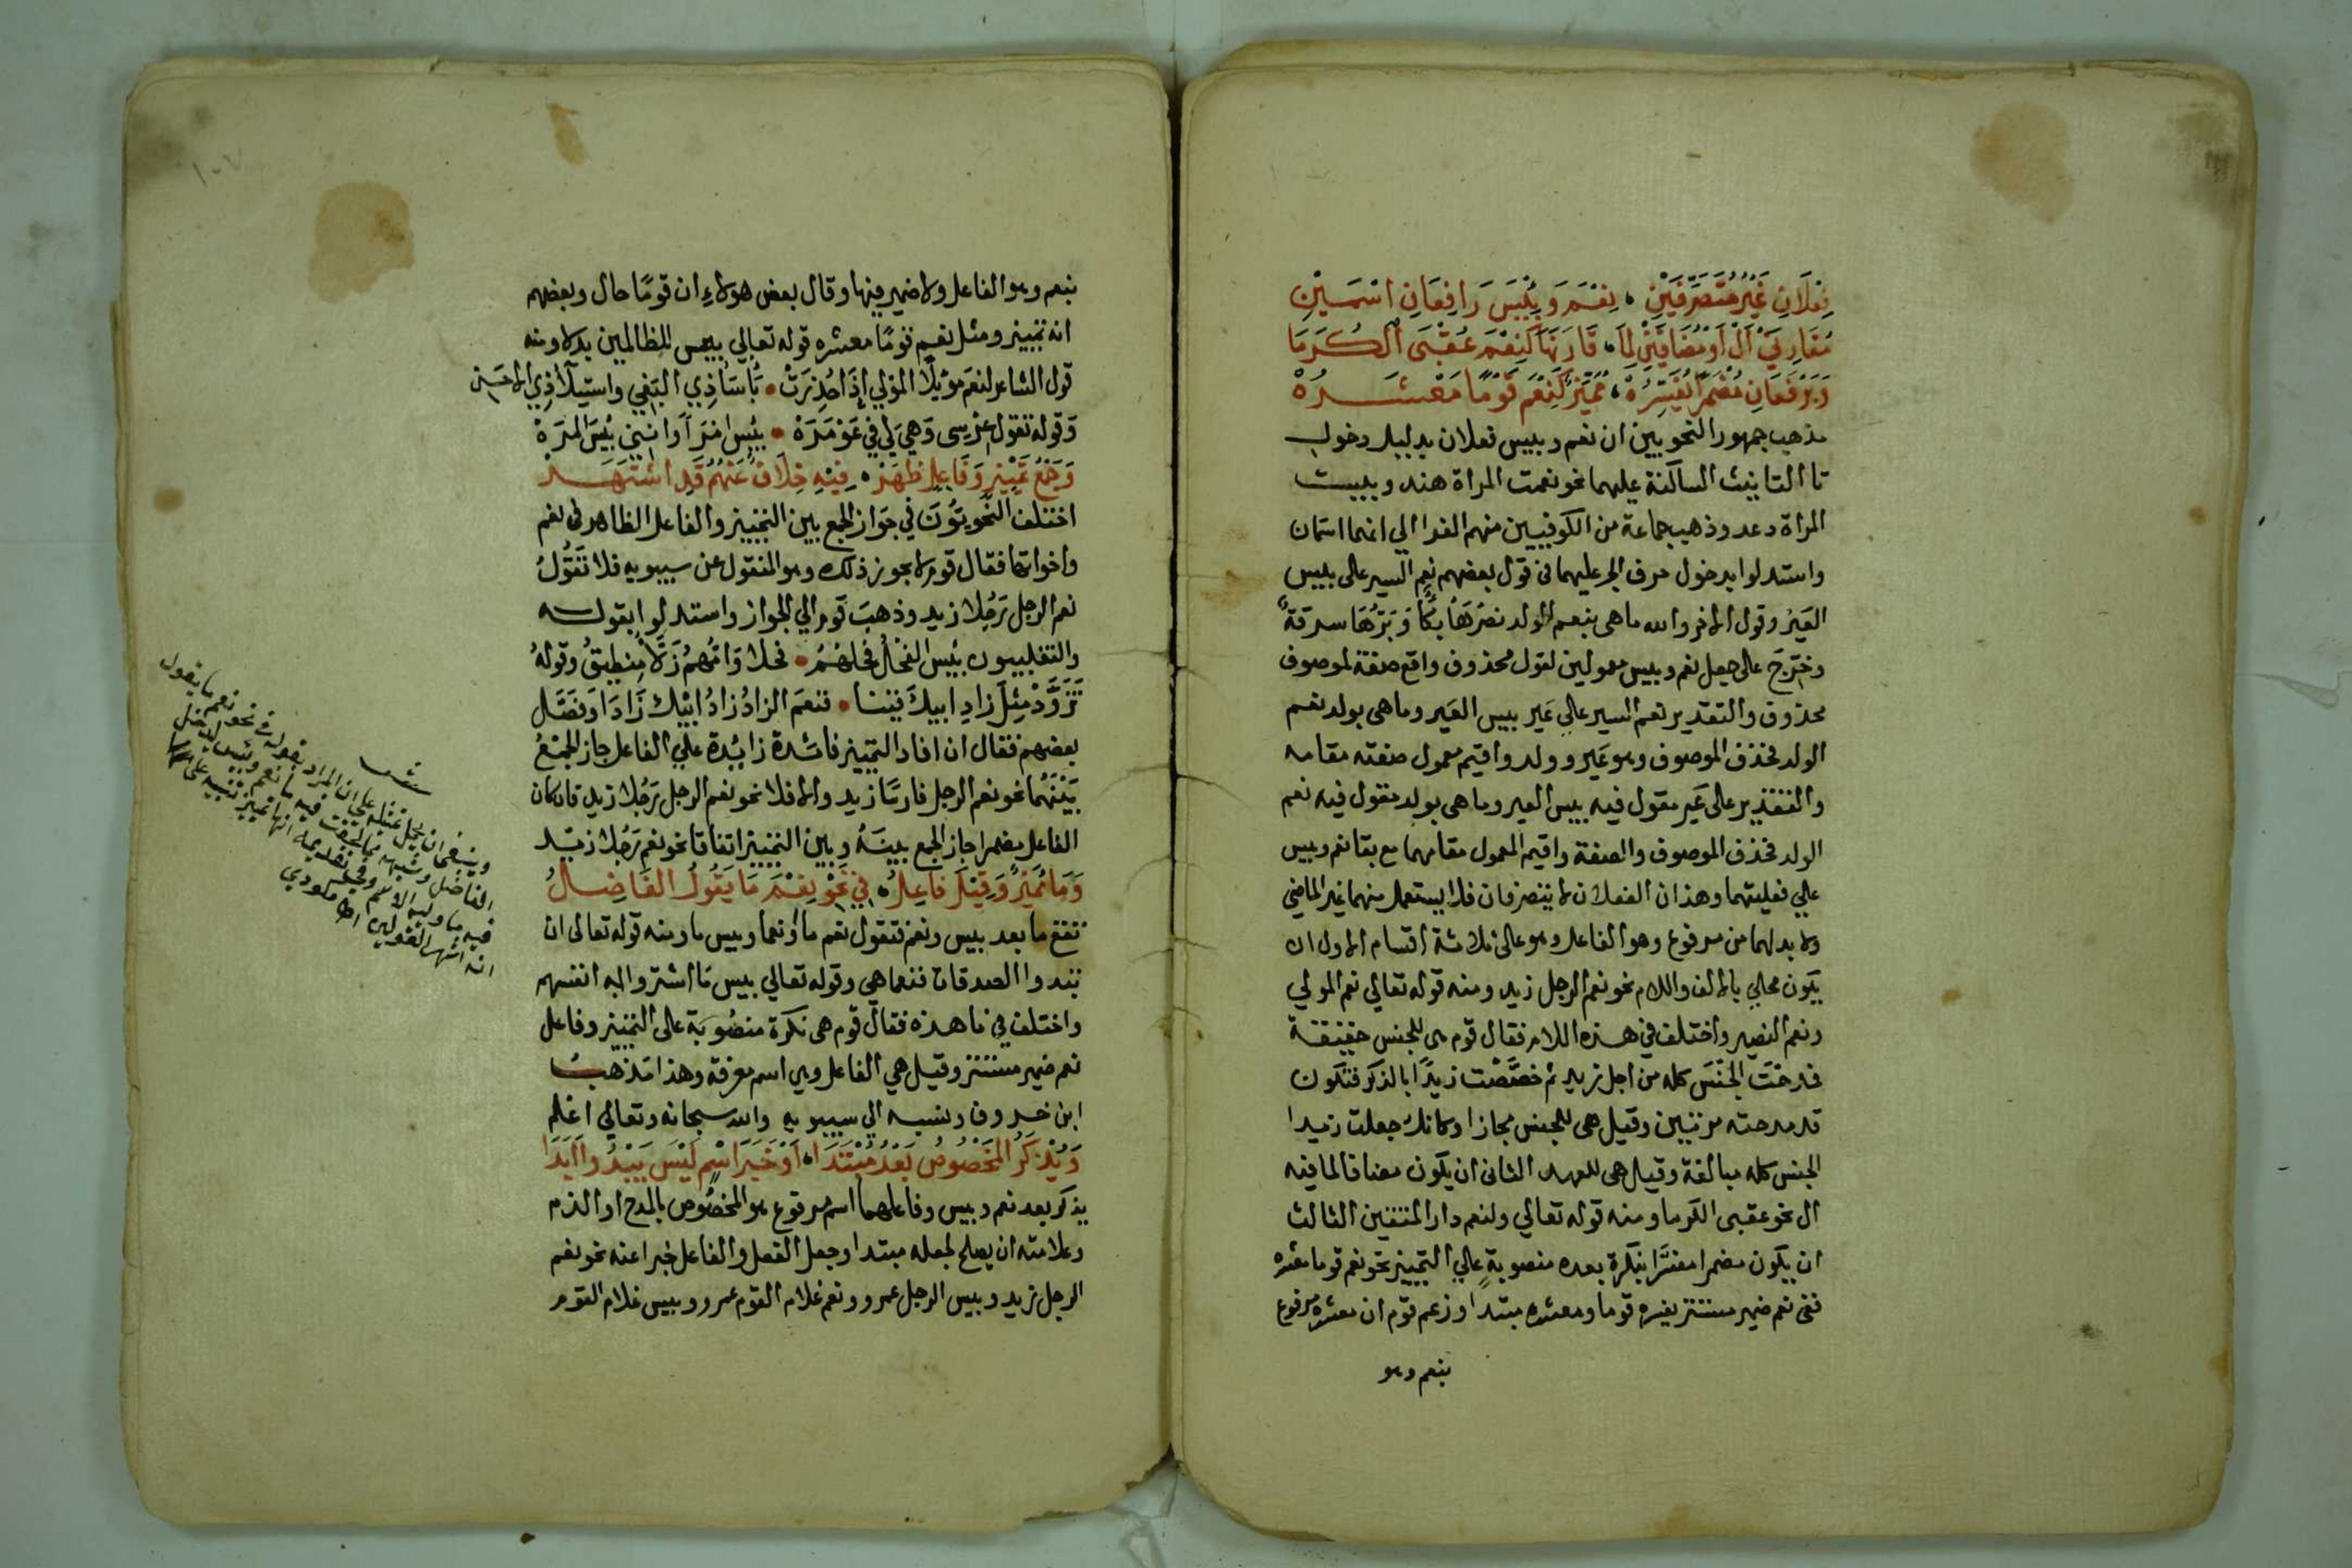 فِعْلَانِ غَيْرُ مُتَصَرِّفَيْنِ ، نِعْمَ وَبِئْسَ رَافِعَانِ اسْمَيْنِ
مُقَارِنَيْ أَلْ أَوْ مُضَافَيْنِ لِمَا ، قَارَنَهَا كَنِعْمَ عُقْبَى الْكُرَمَا
وَيَرْفَعَانِ مُضْمَرًا يُفَسِّرُهُ ، مُمَيِّزٌ كَنِعْمَ قَوْمًا مَعْشَرُهُ
مذهب جمهور النحويين ان نعم وبيس فعلان بدليل دخول
تا التانيث الساكنة عليهما نحو نعمت المراة هند وبيست
المراة دعد وذهب جماعة من الكوفيين منهم الفرا الي انهما اسمان
واستدلوا بدخول حرف الجر عليهما في قول بعضهم نعم السير على بيس
العَيْرُ وقول الاخر والله ماهى بنعم الولد نصرَهَا بُكًا وَبَرُّهَا سرقةٌ
وخرّج على جعل نعم وبيس معمولين لقول محذوف واقع صفة لموصوف
محذوف والتقدير نعم السير علي عَير بيس العَير وما هى بولد نعم
الولد فحذف الموصوف وهو عَير وولد واقيم معمول صفته مقامه
والتقدير على عَير مقول فيه بيس العير وما هى بولد مقول فيه نعم
الولد فحذف الموصوف والصفة واقيم المعمول مقامهما مع بقا نعم وبيس
علي فعليتهما وهذان الفعلان لا يتصرفان فلا يستعمل منهما غير الماضي
ولا بد لهما من مرفوع وهو الفاعل وهو على ثلاثة اقسام الاول ان
يكون محلي بالالف واللام نحو نعم الرجل زيد ومنه قوله تعالي نعم المولي
ونعم النصير واختلف في هذه اللام فقال قوم هى للجنس حقيقة
فمدحْتَ الجِنْسَ كله من اجل زيد ثم خصَّصْت زيدًا بالذكر فتكون
قد مدحته مرتين وقيل هى للجنس مجازا وكانك جعلت زيدا
الجنس كله مبالغة وقيل هى للعهد الثانى ان يكون مضافا لما فيه
ال نحو عقبى الكرما ومنه قوله تعالي ولنعم دار المتقين الثالث
ان يكون مضمرا مفسَّرا بنكرة بعده منصوبةٍ علي التمييز نحو نعم قوما معشره
ففى نعم ضمير مستتر يفسره قوما ومعشره مبتدا وزعم قوم ان معشره مرفوع
بنعم وهو
بنعم وهو الفاعل ولا ضمير فيها وقال بعض هولاءِ ان قومًا حال وبعضهم
انه تمييز ومثل نعم قومًا معشره قوله تعالي بيس للظالمين بدلا ومنه
قول الشاعر لنعمَ مَوْئِلًا المولي إذَا حُذِرَتْ • بَأسَاُ ذِي البَغيِ واستيلاُ ذِي الاحَنِ
وَقوله تقول عِرْسى وَهِيَ لي في عَوْمَرَهْ • بِئْسِ امْرَأً وَانني بئسَ المَرَهْ
وَجَمْعُ تَمْيِيزٍ وَفَاعِلٍ ظَهَرْ ، فِيْهِ خِلَافٌ عَنْهُمُ قَدِ اشْتَهَرْ
اختلف النَّحْويّونَ في جَوَاز الجمع بين التمييز والفاعل الظاهر فى نعم
واخواتها فقال قوم لا يجوز ذلك وهو المنقول عن سيبويه فلا تَقُولُ
نعم الرجل رَجُلا زيد وذهبَ قوم الي الجواز واستدلوا بقوله
والتغلبيون بئس الفحل فحلهُمُ • فحلا وَامّهمُ زَلّاُ مِنطيقُ وقولهُ
تَزَوَّدْ مِثلَ زادِ ابيكَ فينا • فنعمَ الزادُ زادُ ابيْك زَادَا وَفصّل
بعضهم فقال ان افاد التمييز فائدة زائدة علي الفاعل جاز الجمعُ
بَيْنَهُمَا نحو نعم الرجل فارسًا زيد والا فلا نحو نعم الرجل رَجُلا زيد فان كان
الفاعل مضمرا جاز الجمع بينَهُ وبين التمييز اتفاقا نحو نعم رَجُلا زيد
وَمَا مُمَيِّزٌ وَقِيْلَ فَاعِلُ ، فِي نَحْوِ نِعْمَ مَا يَقُولُ الْفَاضِلُ
تقع ما بعد بيس ونعم فتقول نعم ما او نعما وبيس ما ومنه قوله تعالى ان
تبدوا الصدقات فنعما هي وقوله تعالي بيس مَا اشتروا به انفسهم
واختلف في ما هذه فقال قوم هى نكرة منصُوبَة على التمييز وفاعل
نعم ضمير مستتر وقيل هي الفاعل وهى اسم معرفة وهذا مَذهبُ
ابن خروف ونسبه الي سيبويه والله سبحانه وتعالي اعلم
وَيُذْكَرُ الْمَخْصُوصُ بَعْدُ مُبْتَدَا ، أَوْ خَبَرَ اسْمٍ لَيْسَ يَبْدُو أَبَدَا
يذكر بعد نعم وبيس وفاعلهما اسم مرفوع هو المخصُوص بالمدح او الذم
وعلامته ان يصلح لجعله مبتدا وجعل الفعل والفاعل خبرا عنه نحو نعم
الرجل زيد وبيس الرجل عمرو ونعم غلام القوم عمرو وبيس غلام القوم
وينبغى ان يحمل تمثيله علي ان المراد بقوله في نحو نعم ما يقول